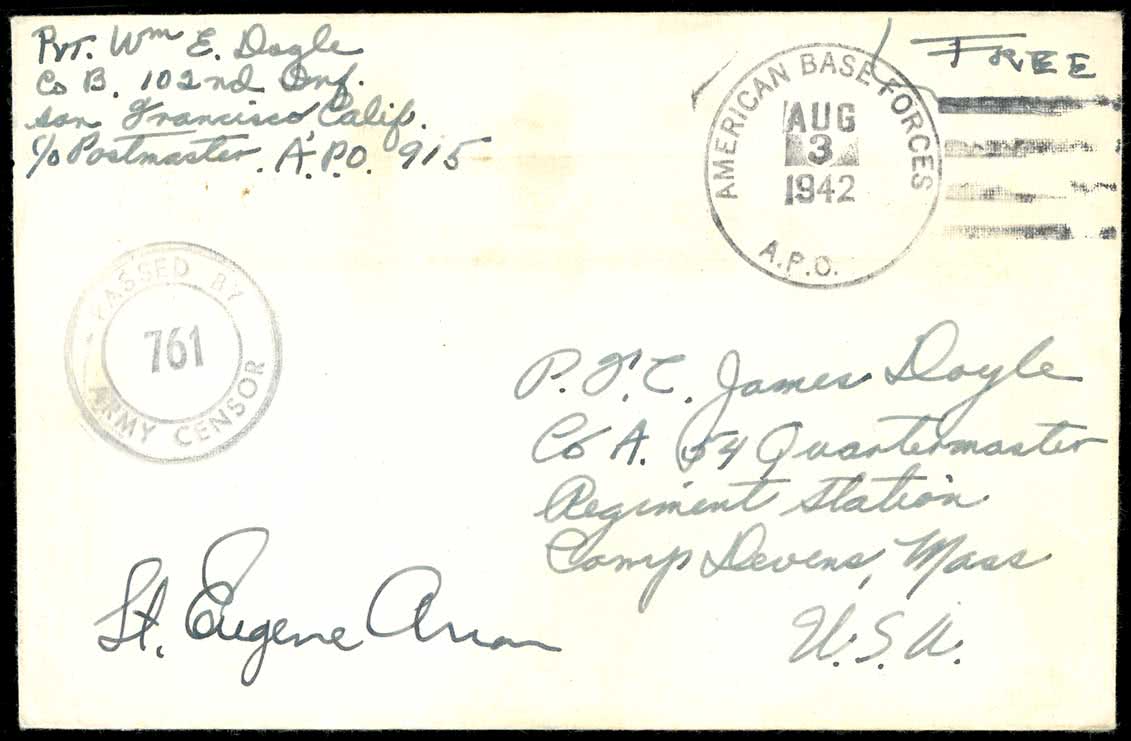 Pvt. Wm E. Doyle
Co B. 102nd Inf.
San Francisco Calif.
c/o Postmaster. A.P.O. 915
FREE
AMERICAN BASE FORCES
AUG
3
1942
A.P.O.
PASSED BY
761
ARMY CENSOR
P.F.C. James Doyle
Co A. 54 Quartermaster
Regiment Station
Camp Devens, Mass
U.S.A.
Lt. Eugene